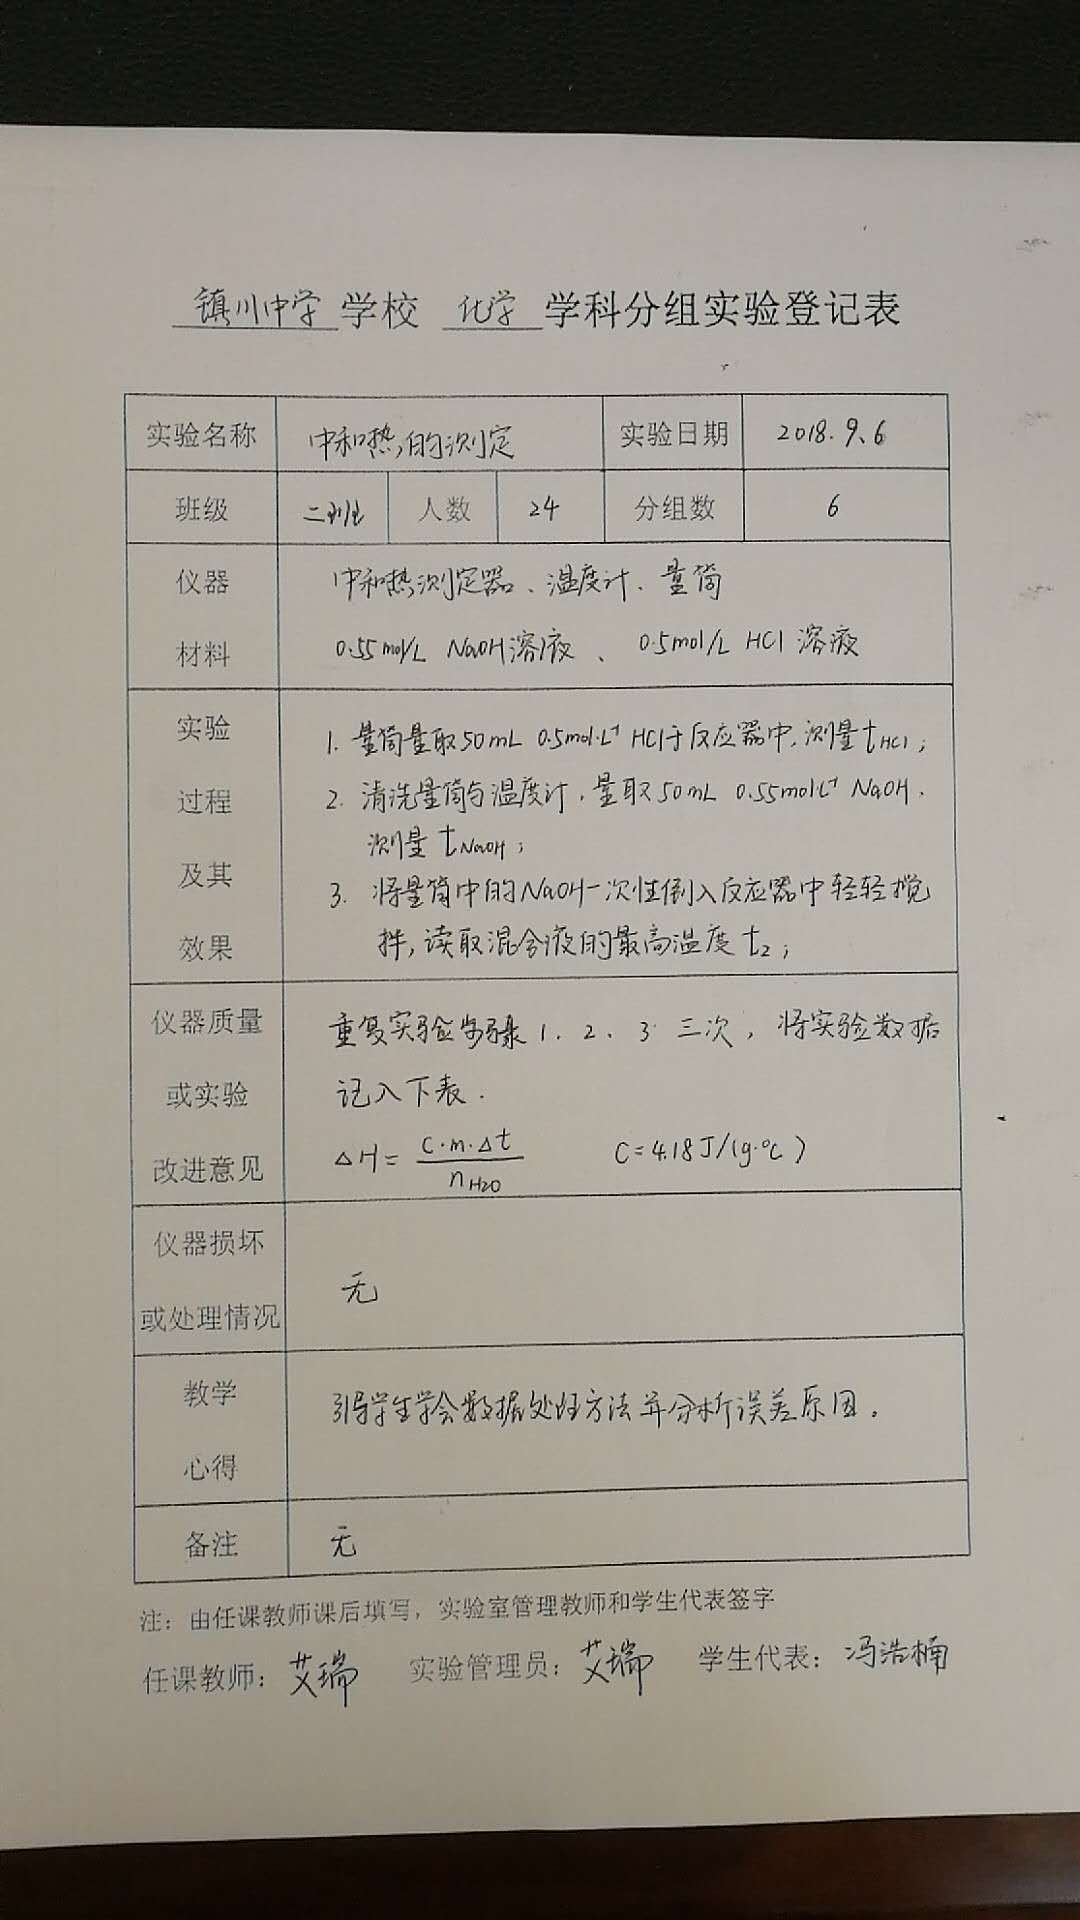 镇川中学 学校 化学 学科分组实验登记表
实验名称 中和热的测定 实验日期 2018.9.6
班级 二班 人数 24 分组数 6
仪器 中和热测定器、温度计、量筒
材料 0.55mol/L NaOH溶液、0.5mol/L HCl 溶液
实验 1. 量筒量取50mL 0.5mol·L⁻¹ HCl于反应器中,测量tHCl;
过程 2. 清洗量筒与温度计,量取50mL 0.55mol·L⁻¹ NaOH.
测量 tNaOH;
及其 3. 将量筒中的NaOH一次性倒入反应器中轻轻搅
效果 拌,读取混合液的最高温度 t₂;
仪器质量 重复实验步骤 1、2、3 三次,将实验数据
或实验 记入下表.
改进意见 △H = C·m·△t / nH2O C=4.18J/(g·℃)
仪器损坏
或处理情况 无
教学 引导学生学会数据处理方法并分析误差原因。
心得
备注 无
注:由任课教师课后填写,实验室管理教师和学生代表签字
任课教师:艾瑞 实验管理员:艾瑞 学生代表:冯浩楠